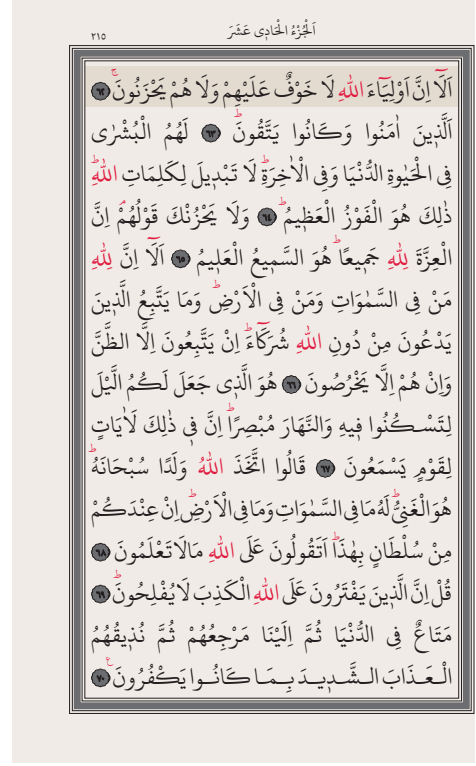 اَلْجُزْءُ الْحَادِى عَشَرَ
٢١٥
اَلَٓا اِنَّ اَوْلِيَٓاءَ اللّٰهِ لَا خَوْفٌ عَلَيْهِمْ وَلَا هُمْ يَحْزَنُونَۚ ﴿٦٢﴾
اَلَّذٖينَ اٰمَنُوا وَكَانُوا يَتَّقُونَؕ ﴿٦٣﴾ لَهُمُ الْبُشْرٰى
فِى الْحَيٰوةِ الدُّنْيَا وَفِى الْاٰخِرَةِؕ لَا تَبْدٖيلَ لِكَلِمَاتِ اللّٰهِؕ
ذٰلِكَ هُوَ الْفَوْزُ الْعَظٖيمُؕ ﴿٦٤﴾ وَلَا يَحْزُنْكَ قَوْلُهُمْۘ اِنَّ
الْعِزَّةَ لِلّٰهِ جَمٖيعًاؕ هُوَ السَّمٖيعُ الْعَلٖيمُ ﴿٦٥﴾ اَلَٓا اِنَّ لِلّٰهِ
مَنْ فِى السَّمٰوَاتِ وَمَنْ فِى الْاَرْضِؕ وَمَا يَتَّبِعُ الَّذٖينَ
يَدْعُونَ مِنْ دُونِ اللّٰهِ شُرَكَٓاءَؕ اِنْ يَتَّبِعُونَ اِلَّا الظَّنَّ
وَاِنْ هُمْ اِلَّا يَخْرُصُونَ ﴿٦٦﴾ هُوَ الَّذٖى جَعَلَ لَكُمُ الَّيْلَ
لِتَسْكُنُوا فٖيهِ وَالنَّهَارَ مُبْصِرًاؕ اِنَّ فٖى ذٰلِكَ لَاٰيَاتٍ
لِقَوْمٍ يَسْمَعُونَ ﴿٦٧﴾ قَالُوا اتَّخَذَ اللّٰهُ وَلَدًا سُبْحَانَهُؕ
هُوَ الْغَنِىُّؕ لَهُ مَا فِى السَّمٰوَاتِ وَمَا فِى الْاَرْضِؕ اِنْ عِنْدَكُمْ
مِنْ سُلْطَانٍ بِهٰذَاؕ اَتَقُولُونَ عَلَى اللّٰهِ مَا لَا تَعْلَمُونَ ﴿٦٨﴾
قُلْ اِنَّ الَّذٖينَ يَفْتَرُونَ عَلَى اللّٰهِ الْكَذِبَ لَا يُفْلِحُونَؕ ﴿٦٩﴾
مَتَاعٌ فِى الدُّنْيَا ثُمَّ اِلَيْنَا مَرْجِعُهُمْ ثُمَّ نُذٖيقُهُمُ
الْعَذَابَ الشَّدٖيدَ بِمَا كَانُوا يَكْفُرُونَ ﴿٧٠﴾